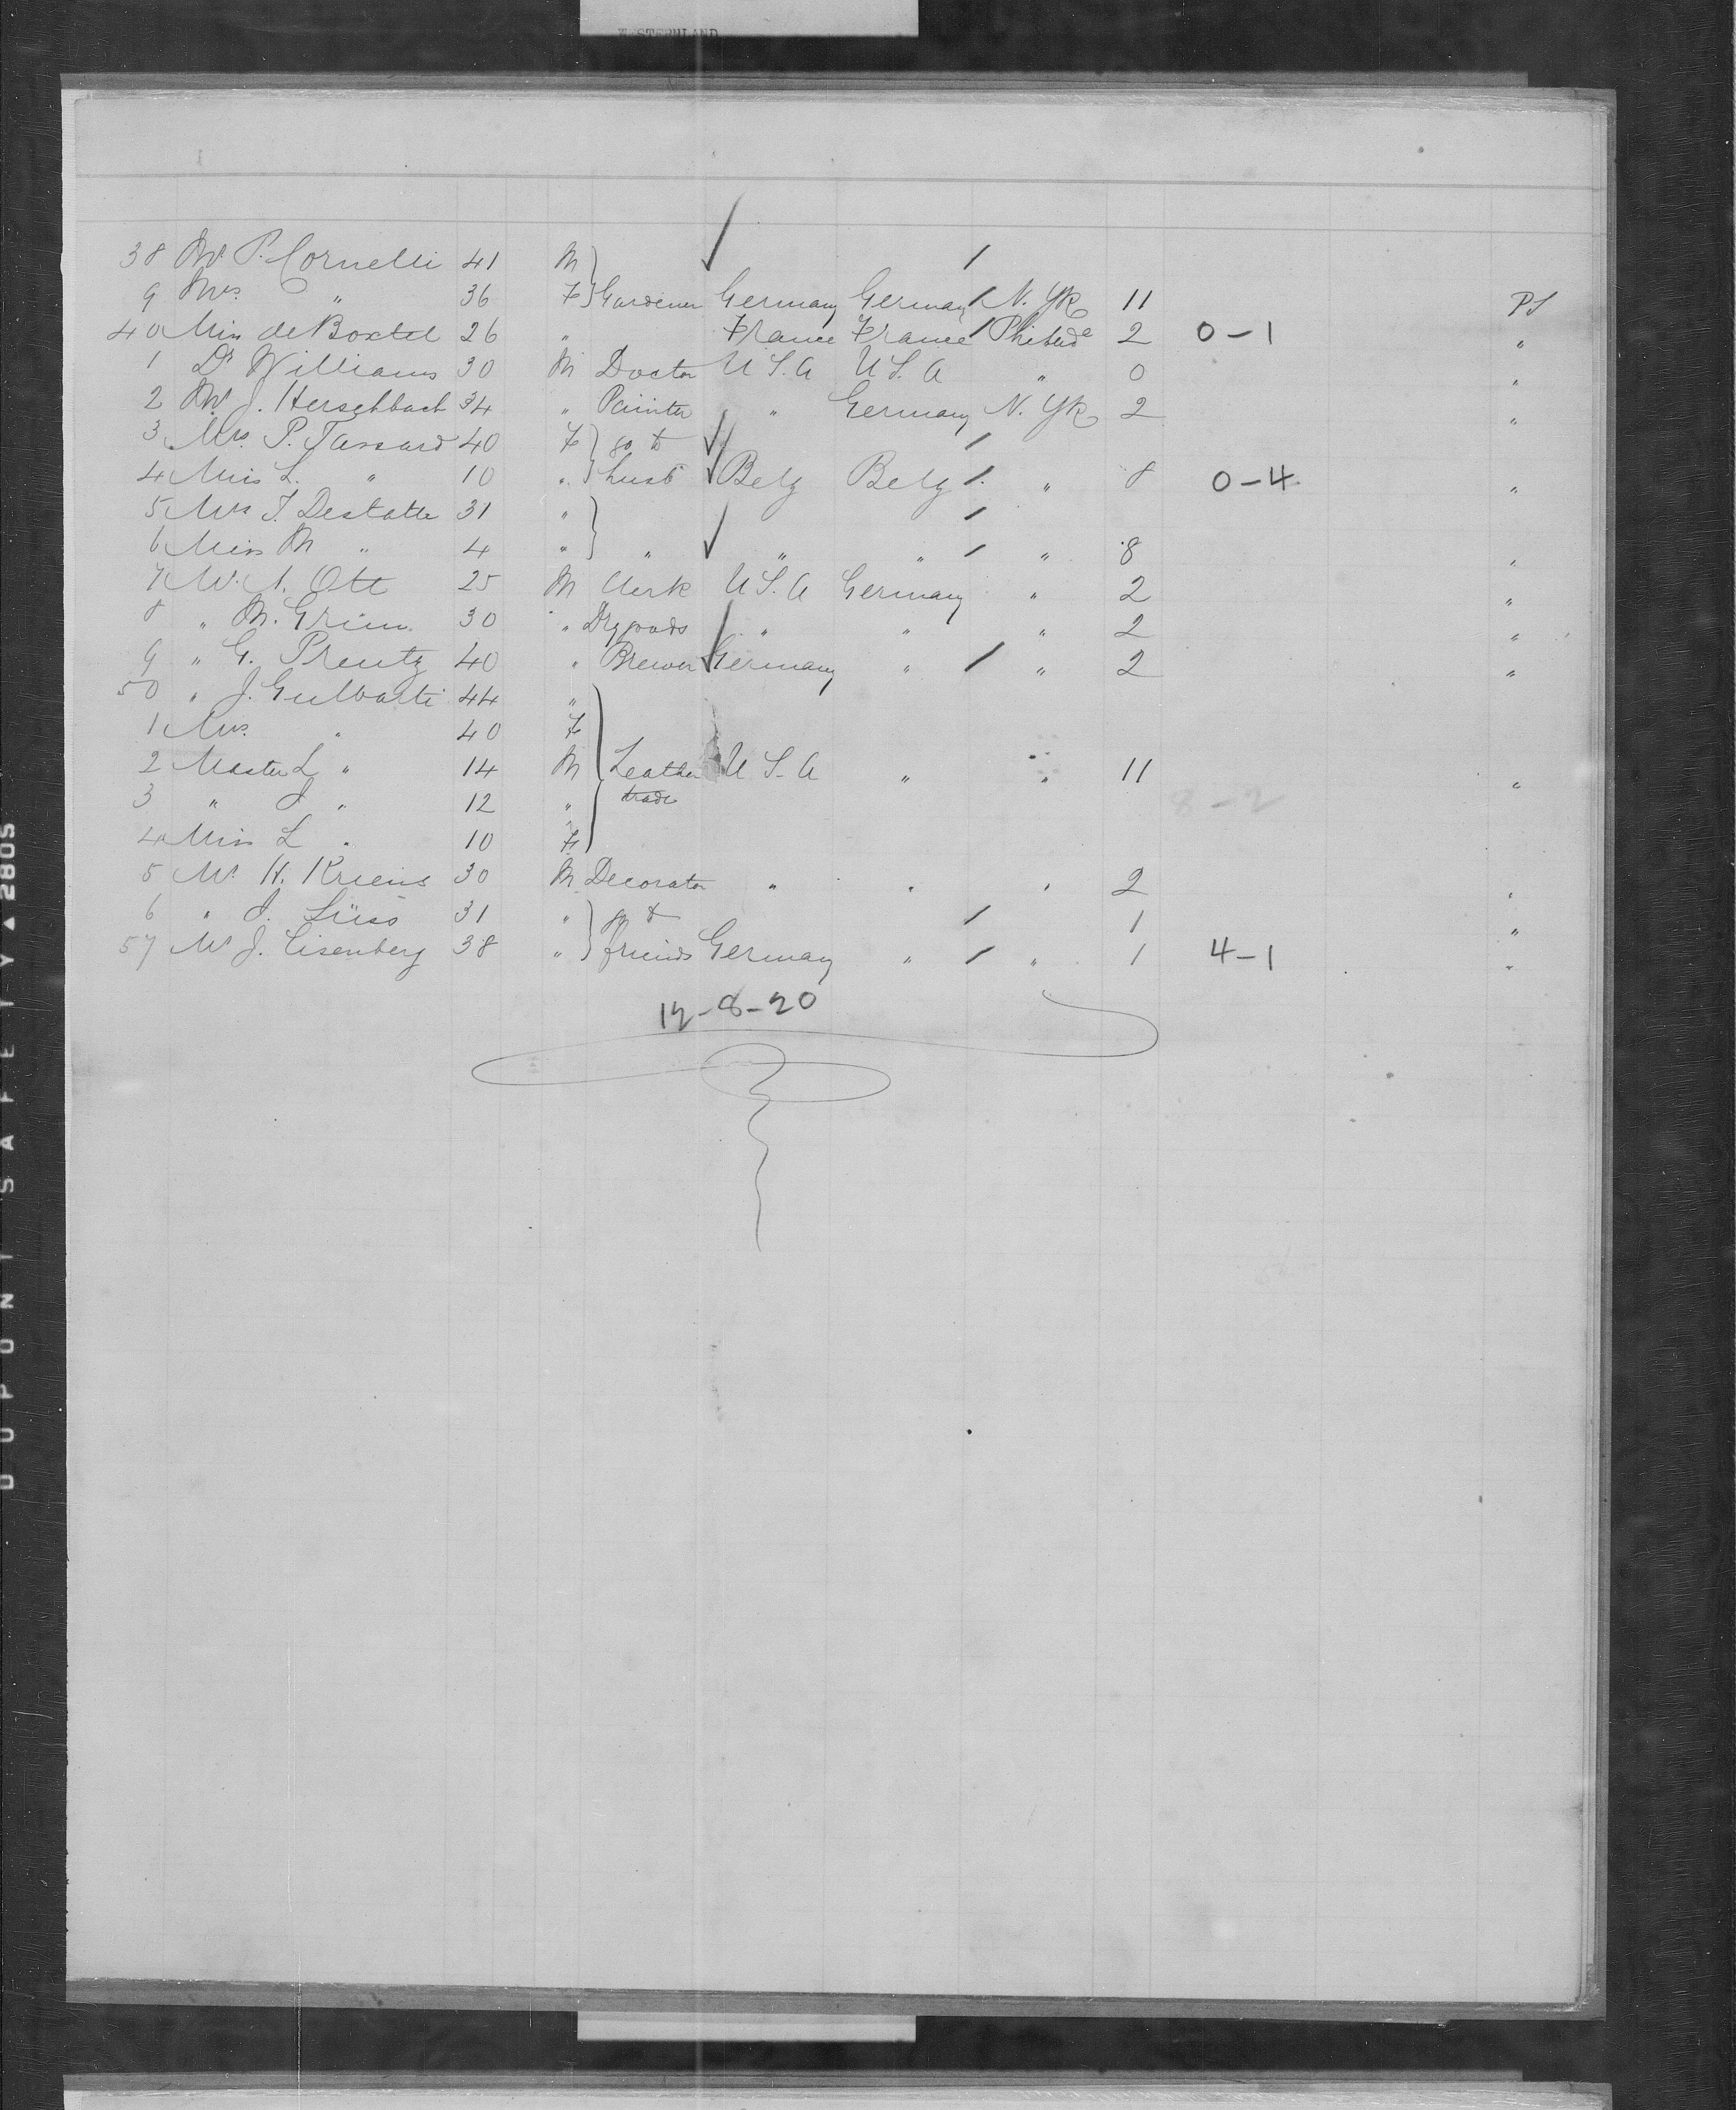 WESTERNLAND
38 Mr P. Cornelli 41 M
9 Mrs " 36 F } Gardener Germany Germany N. Yk 11 PS
40 Miss de Boxtel 26 " France France Philad^a 2 0-1 "
1 Dr Williams 30 M Doctor U S. A U S. A " 0 "
2 Mr J. Herschbach 34 " Painter " Germany N. Yk 2 "
3 Mrs P. Tassard 40 F } go to
4 Miss L. " 10 " } husb Belg Belg " 8 0-4 "
5 Mrs J. Destatte 31 " }
6 Miss M " 4 " } " " " " 8 "
7 Mr. A. Ott 25 M Clerk U S. A Germany " 2 "
8 " M. Grim 30 " Drygoods " " " 2 "
9 " G. Prentz 40 " Brewer Germany " " 2 "
50 " J. 44 "
1 Mrs. " 40 F
2 Master L " 14 M Leather U S. A " " 11 "
3 " J " 12 " trade 8-2
4 Miss L " 10 F
5 Mr. H. Kriens 30 M Decorator " " " 2 "
6 " J. Süss 31 " } go to 1 "
57 Mr J. Eisenberg 38 " } friends Germany " " 1 4-1 "
12-8-20
DUPONT SAFETY ▲ 280S